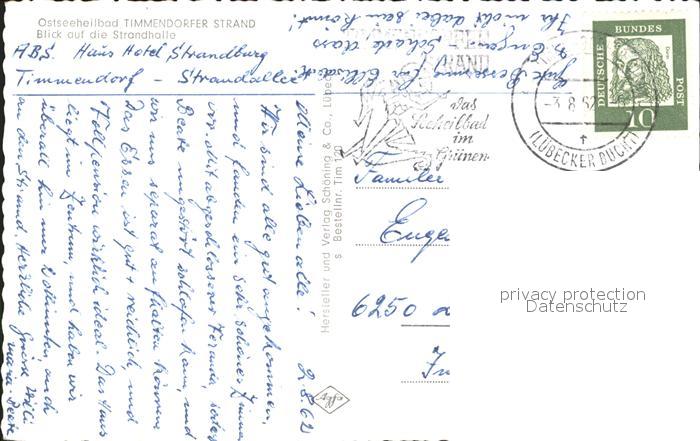 Ostseeheilbad TIMMENDORFER STRAND
Blick auf die Strandhalle
ABS. Haus Hotel Strandburg
Timmendorf - Strandallee
Meine Lieben alle! 2.8.62
Hier sind alle gut angekommen,
und fanden ein sehr schönes Zimmer
vor mit abgeschlossener Veranda, sodass
Beate ungestört schlafen kann, und
wir uns separat aufhalten können
Das Essen ist gut + reichlich, und
Vollpension wirklich ideal. Das Haus
liegt im Zentrum, und haben wir
überall hin nur 2 Minuten, auch
an den Strand. Herzliche Grüsse Willi
Gute Besserung für Elisabeth
+ Eugen. Schade dass
Ihr nicht dabei sein könnt!
Hersteller und Verlag Schöning & Co., Lübeck
Bestellnr. Tim 120
STRAND
Das
Seeheilbad
im
Grünen
DEUTSCHE BUNDES POST
10
-3.8.62
(LÜBECKER BUCHT)
Familie
Euge
6250
privacy protection
Datenschutz